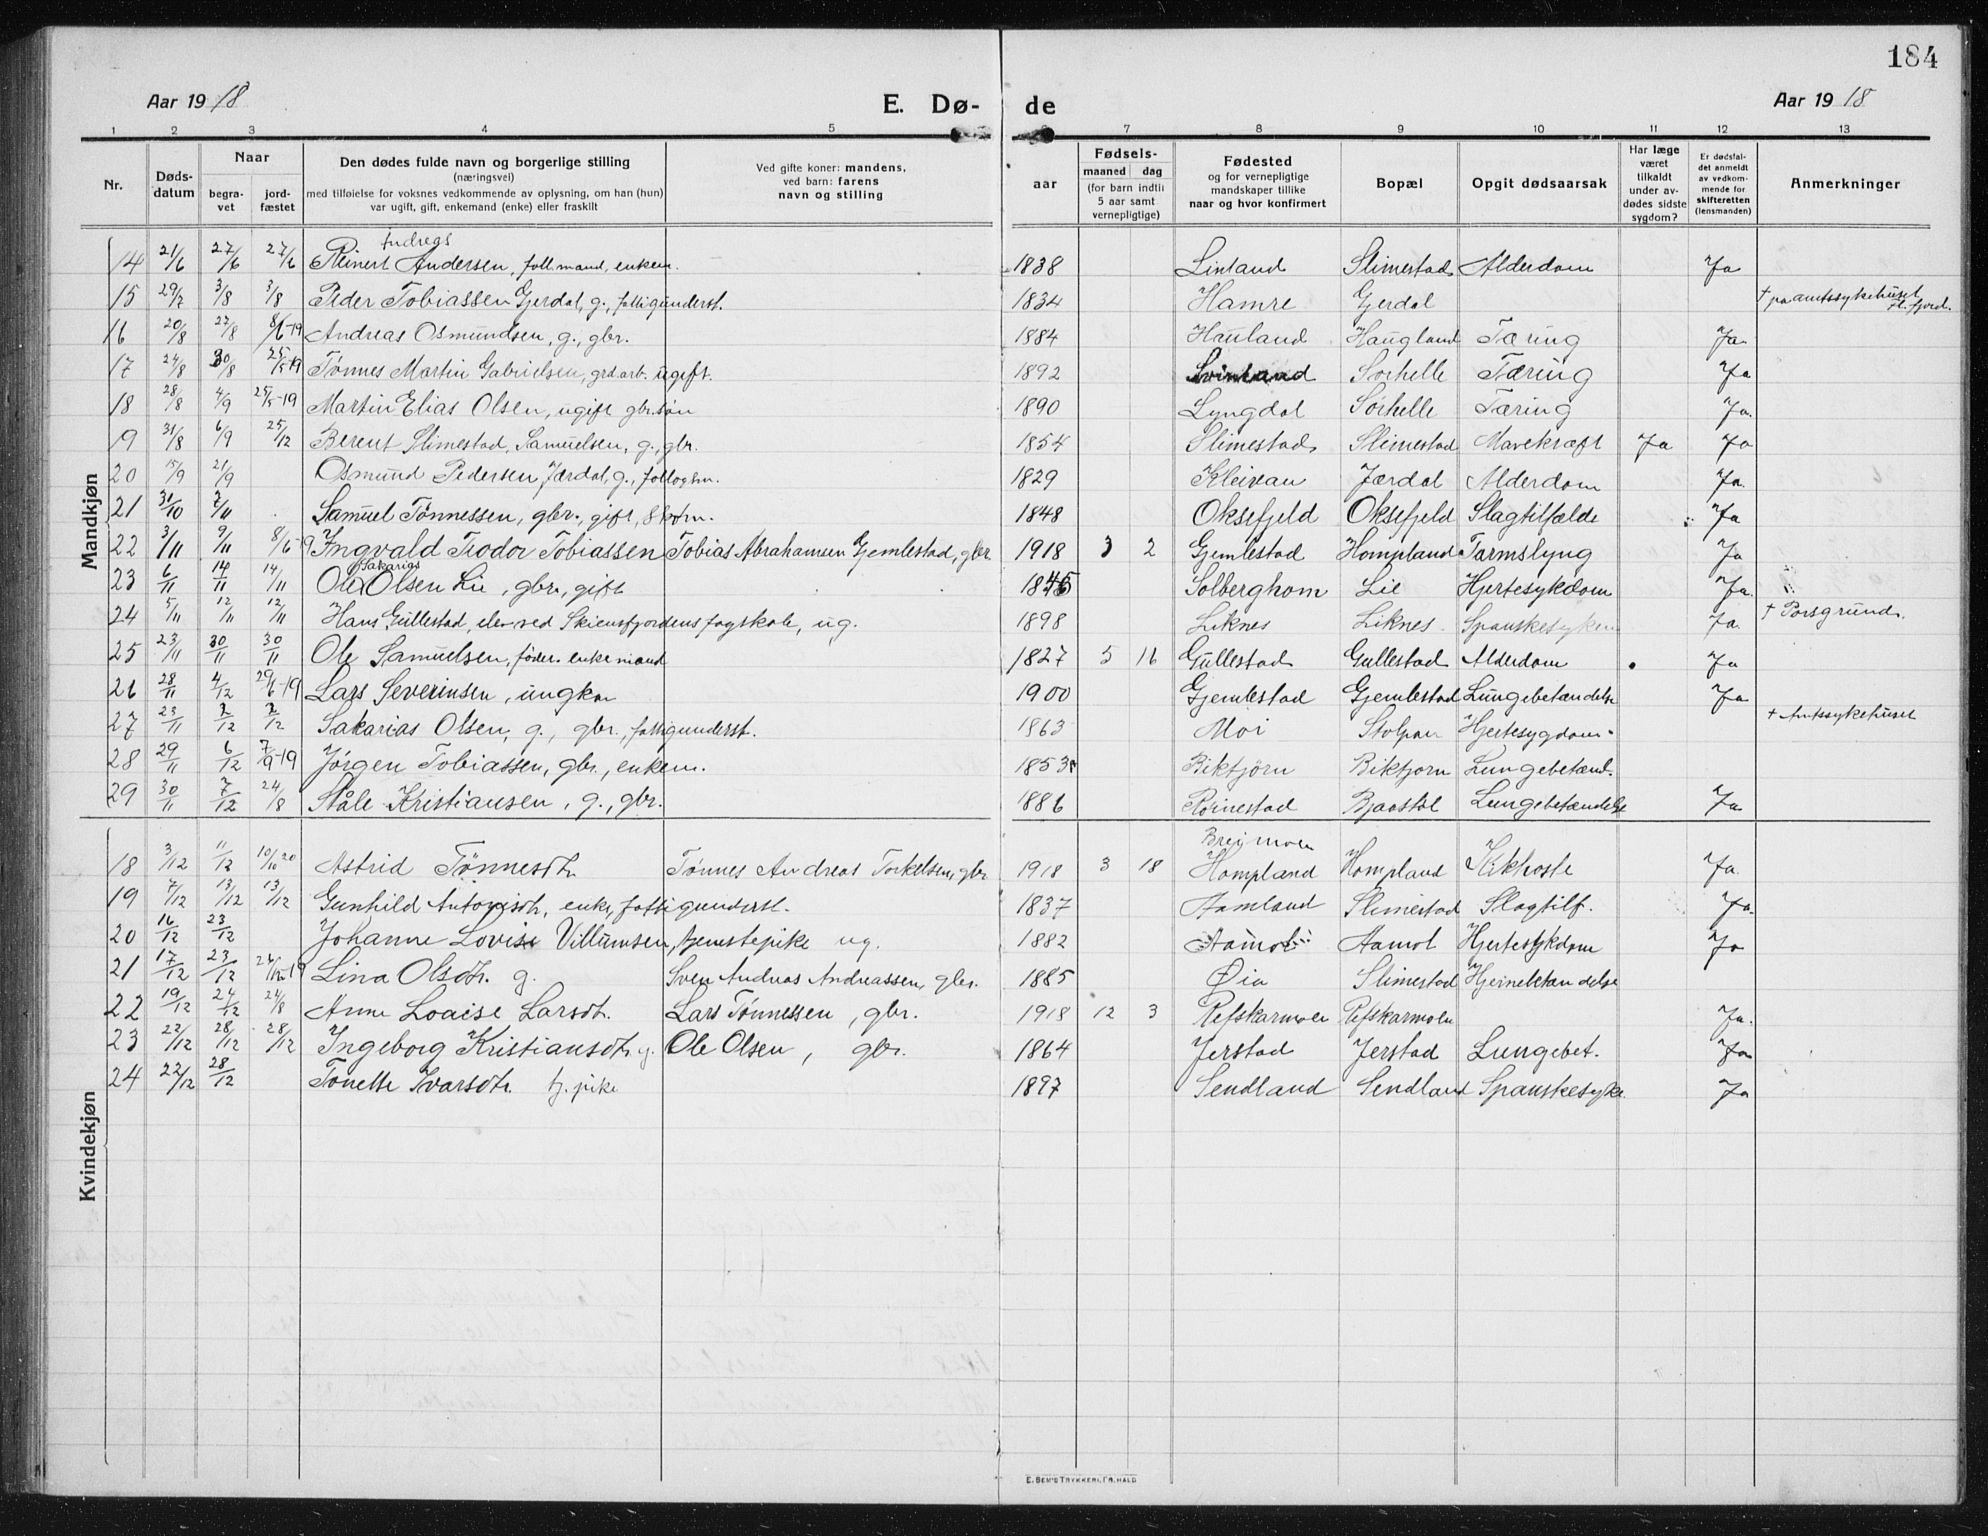 184
Aar 1918 E. Dø- de Aar 1918
1 2 3 4 5 7 8 9 10 11 12 13
Nr. Dødsdatum Naar begravet jordfæstet Den dødes fulde navn og borgerlige stilling (næringsvei) med tilføielse for voksnes vedkommende av oplysning, om han (hun) var ugift, gift, enkemand (enke) eller fraskilt Ved gifte koner: mandens, ved barn: farens navn og stilling aar Fødsels- maaned dag (for barn indtil 5 aar samt vernepligtige) Fødested og for vernepligtige mandskaper tillike naar og hvor konfirmert Bopæl Opgit dødsaarsak Har læge været tilkaldt under avdødes sidste sygdom? Er dødsfaldet anmeldt av vedkommende for skifteretten (lensmanden) Anmerkninger
Mandkjøn
14 21/6 27/6 27/6 Reinert Andreas Andersen, foll.mand, enkem. 1838 Lintland Slimestad Alderdom Ja
15 29/7 3/8 3/8 Peder Tobiassen Gjerdal, g., fattigunderst. 1834 Hamre Gjerdal † paa amtssykehuset Fl.fjord.
16 20/8 27/8 8/6-19 Andreas Osmundsen, g., gbr. 1884 Hauland Haugland Tæring Ja
17 24/8 30/8 25/5-19 Tønnes Martin Gabrielsen, grd.arb. ugift. 1892 Svinland Sørhelle Tæring Ja
18 28/8 4/9 25/5-19 Martin Elias Olsen, ugift gbr.søn 1890 Lyngdal Sørhelle Tæring Ja.
19 31/8 6/9 25/12 Berent Slimestad Samuelsen, g., gbr. 1854 Slimestad Slimestad Mavekræft Ja Ja
20 15/9 21/9 Osmund Pedersen Jærdal, g., follogsm. 1829 Kleivan Jærdal Alderdom Ja.
21 31/10 7/11 Samuel Tønnessen, gbr., gift, 8 barn. 1848 Oksefjeld Oksefjeld Slagtilfælde Ja
22 3/11 9/11 8/6-19 Ingvald Teodor Tobiassen Tobias Abrahamsen Gjemlestad, gbr 1918 3 2 Gjemlestad Hompland Tarmslyng Ja
23 6/11 14/11 14/11 Ole Sakarias Olsen Lie, gbr., gift 1845 Solberghom Lie Hjertesykdom Ja.
24 5/11 12/11 12/11 Hans Gullestad, elev ved Skiensfjordens fagskole, ug. 1898 Liknes Liknes Spanskesyken Ja. † Porsgrund.
25 23/11 30/11 30/11 Ole Samuelsen, føder. enkemand 1827 5 16 Gullestad Gullestad Alderdom Ja
26 28/11 4/12 29/6-19 Lars Severinsen, ungkar 1900 Gjemlestad Gjemlestad Lungebetændelse Ja
27 23/11 2/12 2/12 Sakarias Olsen, g., gbr., fattigunderst. 1863 Moi Stolpan Hjertesygdom. † Amtssykehuset
28 29/11 6/12 7/9-19 Jørgen Tobiassen, gbr., enkem. 1853 Birktjørn Birktjorn Lungebetænd.
29 30/11 7/12 24/8 Ståle Kristiansen, g., gbr. 1886 Rørnestad Bjaastøl Lungebetændelse Ja
Kvindekjøn
18 3/12 11/12 10/10 20 Astrid Tønnesdtr. Tønnes Andreas Torkelsen, gbr 1918 3 18 Breimoen Hompland Hompland Kikhoste Ja
19 7/12 13/12 13/12 Gunhild Antonisdtr, enke, fattigunderst. 1837 Aamland Slimestad Slagtilf. Ja.
20 16/12 23/12 Johanne Lovise Villumsen, tjenestepike ug. 1882 Aamot Aamot Hjertesykdom Ja
21 17/12 23/12 Lina Olsdtr. g. Sven Andreas Andreassen, gbr. 1885 Øia Slimestad Hjernebetændelse
22 19/12 24/12 24/8 Anne Loaise Larsdtr. Lars Tønnessen, gbr. 1918 12 3 Refskarmoen Refskarmoen Ja.
23 22/12 28/12 28/12 Ingeborg Kristiansdtr. g. Ole Olsen, gbr. 1864 Jerstad Jerstad Lungebet. Ja
24 22/12 28/12 Tonette Ivarsdtr. tj.pike 1897 Sendland Sendland Spanskesyke. Ja
E. SEM'S TRYKKERI, FR.HALD